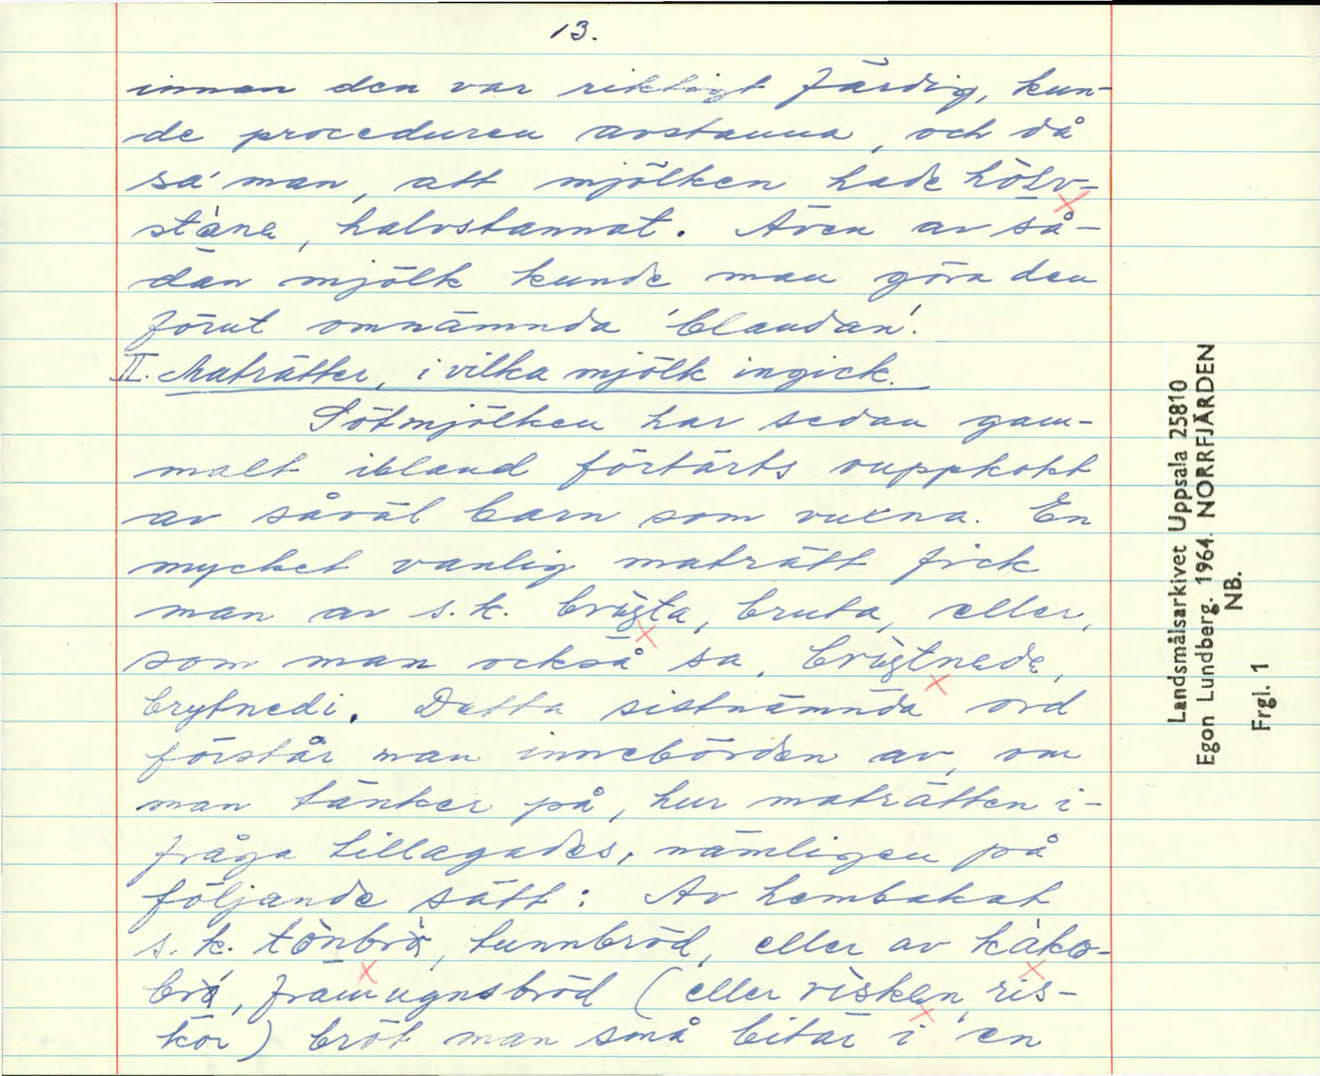 13.
innan den var riktigt färdig, kun-
de proceduren avstanna, och då
sa' man, att mjölken hade hölv-
stàna, halvstannat. Även av så-
dan mjölk kunde man göra den
förut omnämnda 'blandan'.
II. Maträtter, i vilka mjölk ingick.
Sötmjölken har sedan gam-
malt ibland förtärts ouppkokt
av såväl barn som vuxna. En
mycket vanlig maträtt fick
man av s.k. brùsta, bruta, eller,
som man också sa, brùstnede,
brytnedi. Detta sistnämnda ord
förstår man innebörden av, om
man tänker på, hur maträtten i-
fråga tillagades, nämligen på
följande sätt: Av hembakat
s.k. tönbrö, tunnbröd, eller av kàko-
brö, framugnsbröd (eller vìsken, ris-
kor) bröt man små bitar i en
Landsmålsarkivet Uppsala 25810
Egon Lundberg. 1964. NORRFJÄRDEN
NB.
Frgl. 1